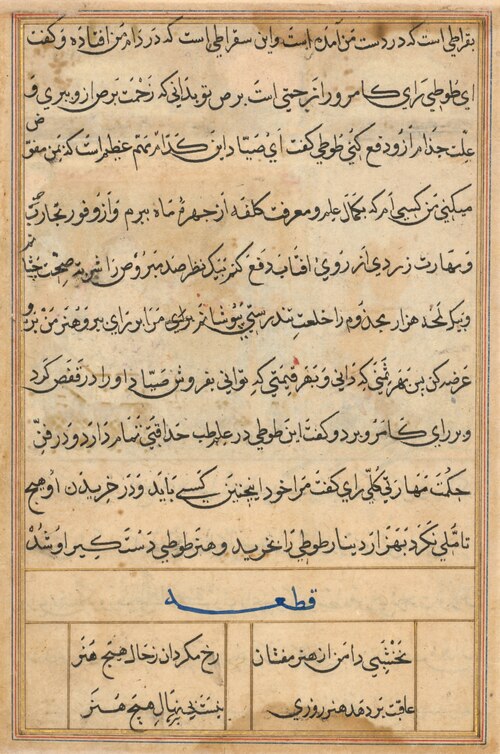 بقراطی است که در دست من آمده است و این سقراطی است که در دام من افتاده و گفت
ای طوطی رای کامرو را زحمتی است برص تو بدانی که زحمت برص ازو ببری و
علت جذام ازو دفع کنی طوطی گفت ای صیاد این کدام مهم عظیم است که بمن مفوض
میکنی من کسی ام که بکمال علم و معرفت کلفه از چهرهٔ ماه ببرم و از وفور تجارب
و مهارت زردی از روی افتاب دفع کنم بیک نظر صد مبروص را شربت صحت چشانم
و بیک لمحه هزار مجذوم را خلعت تندرستی پوشانم برای مرا بر رای ببر و هنر من برو
عرضه کن بهر ثمنی که دانی و بهر قیمتی که توانی بفروش صیاد او را در قفص کرد
و بر رای کامرو برد و گفت این طوطی در علم طب حذاقتی تمام دارد و در فن
حکمت مهارتی کلی رای گفت مرا خود اینچنین کسی باید و در خریدن او هیچ
تاملی نکرد بهزار دینار طوطی را بخرید و هنر طوطی دست کیر او شد
قطعه
نخشبی دامن از هنر مفشان رخ مگردان ز حال هیچ هنر
عاقبت بر دهد هنر روزی نیست بی بر نهال هیچ هنر